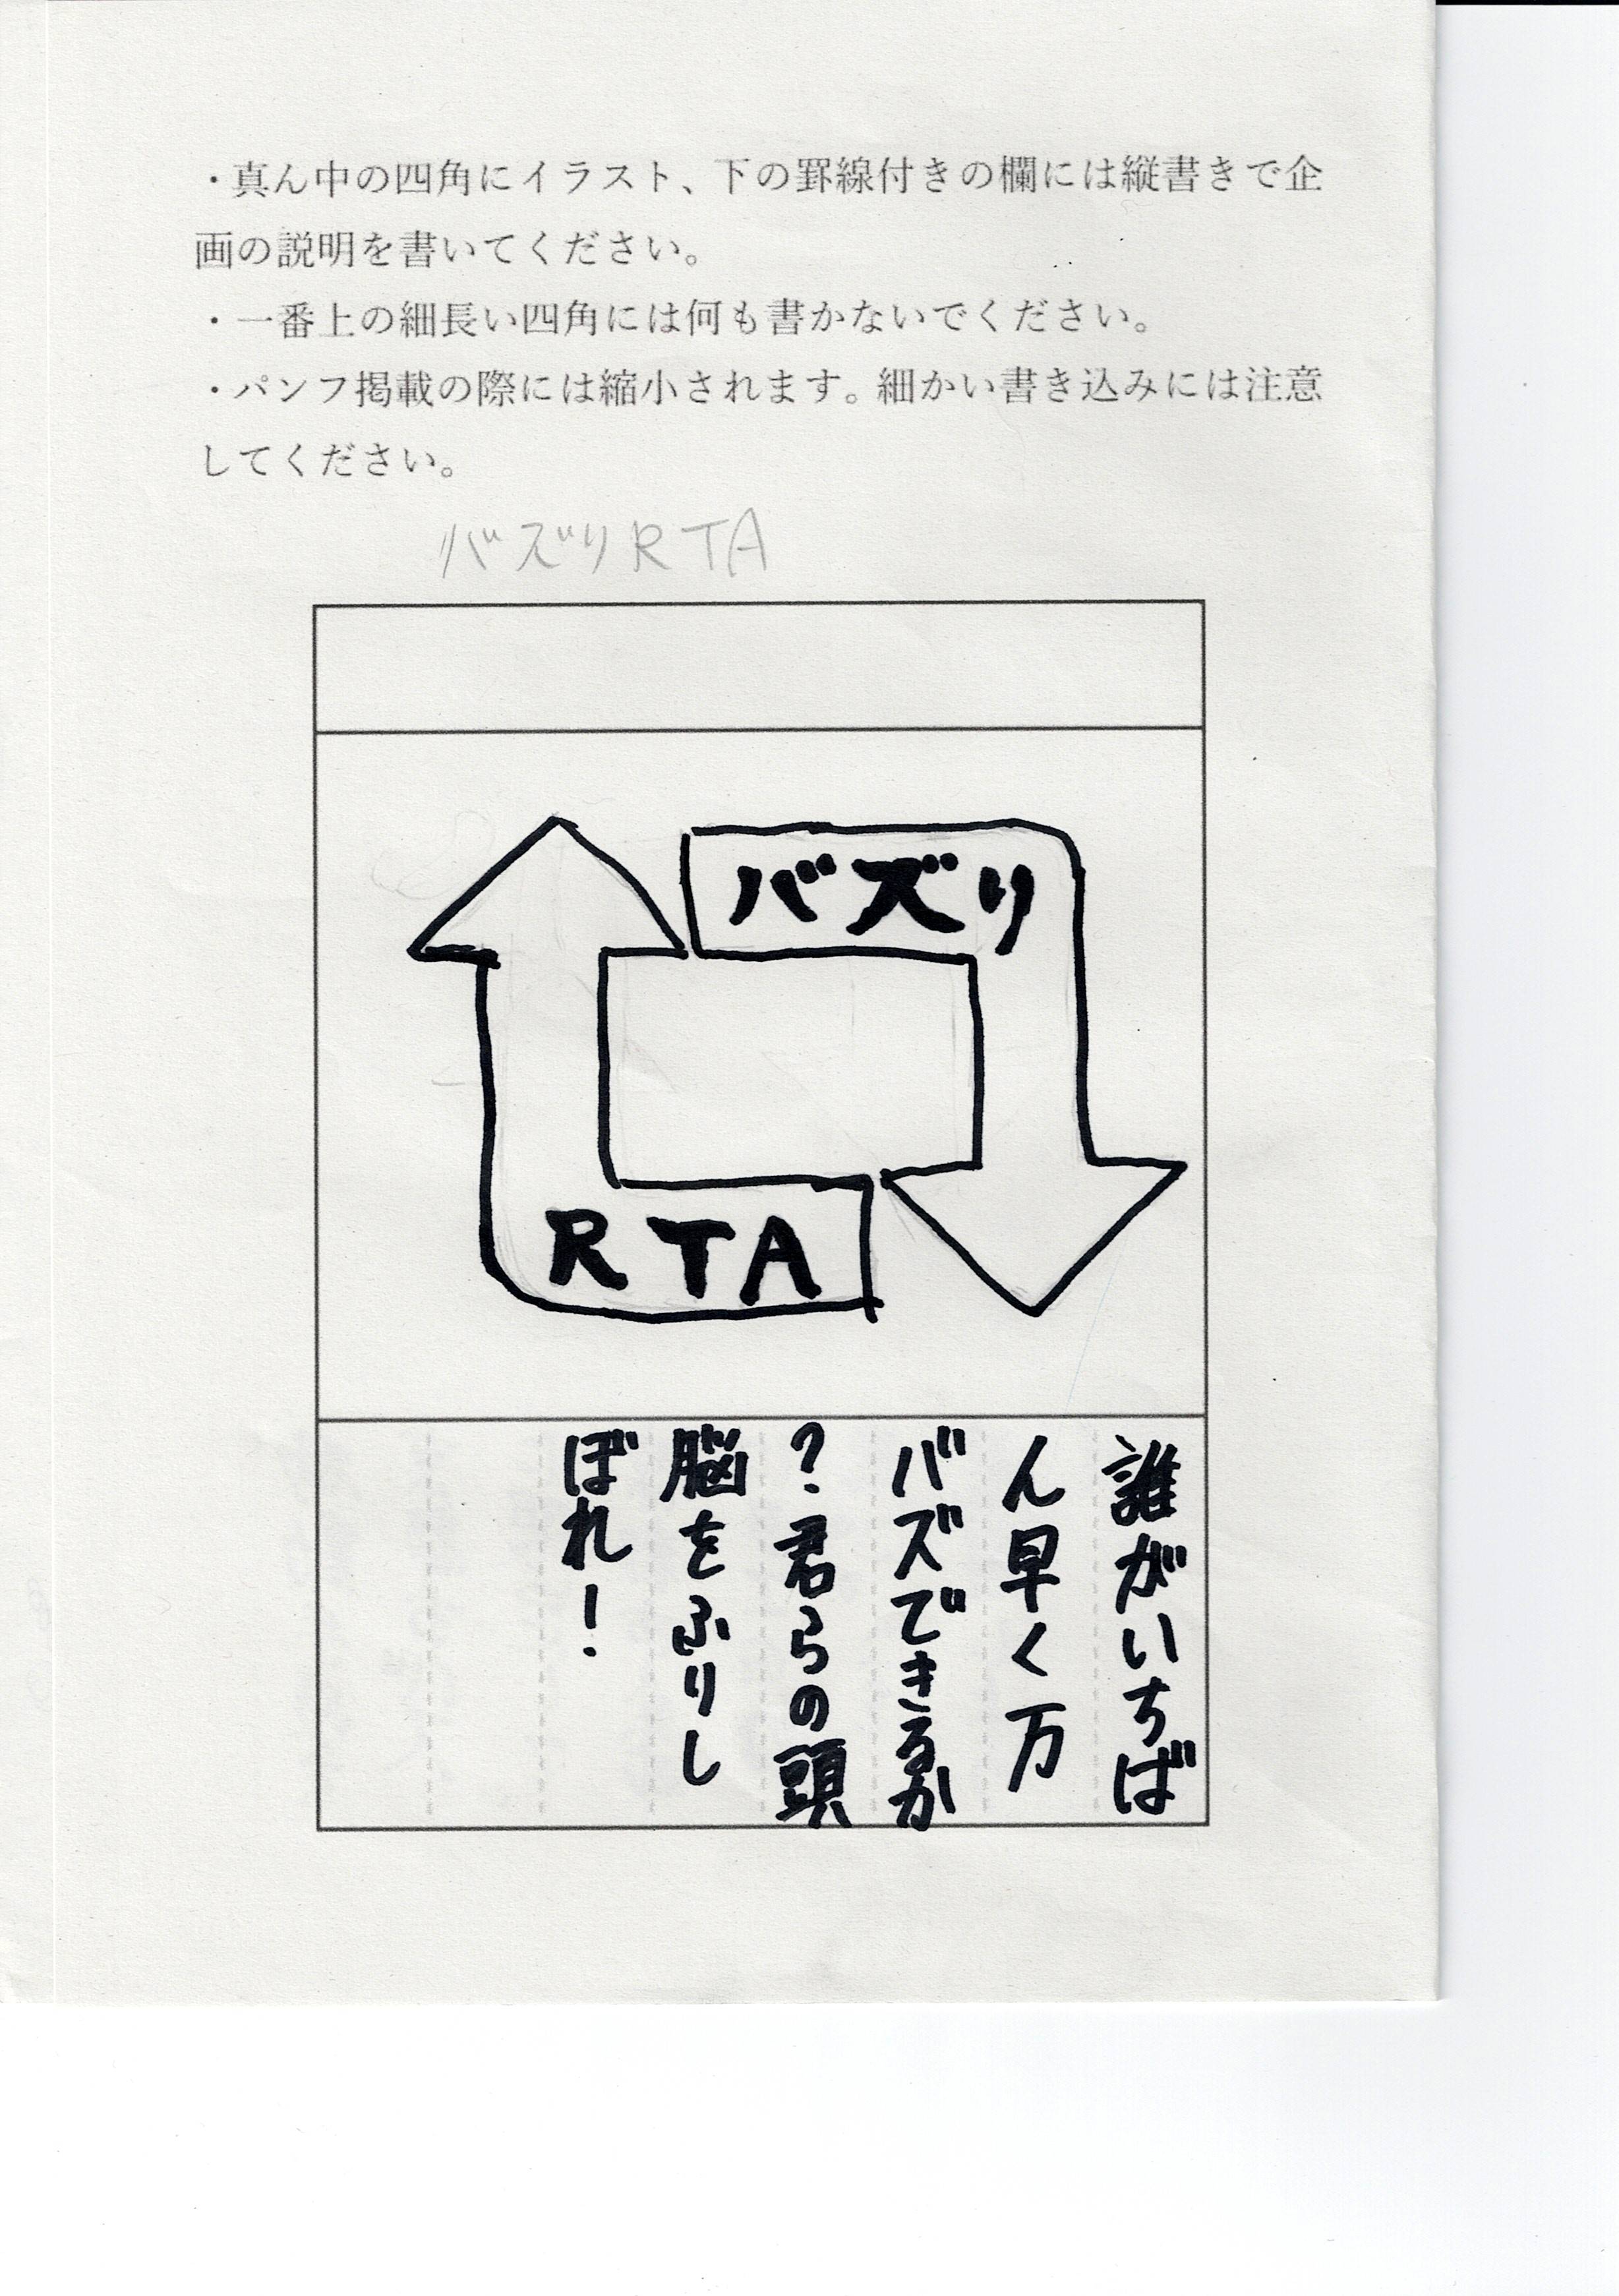 ・真ん中の四角にイラスト、下の罫線付きの欄には縦書きで企
画の説明を書いてください。
・一番上の細長い四角には何も書かないでください。
・パンフ掲載の際には縮小されます。細かい書き込みには注意
してください。
バズりRTA
バズり
RTA
誰がいちば
ん早く万
バズできるか
?君らの頭
脳をふりし
ぼれ!